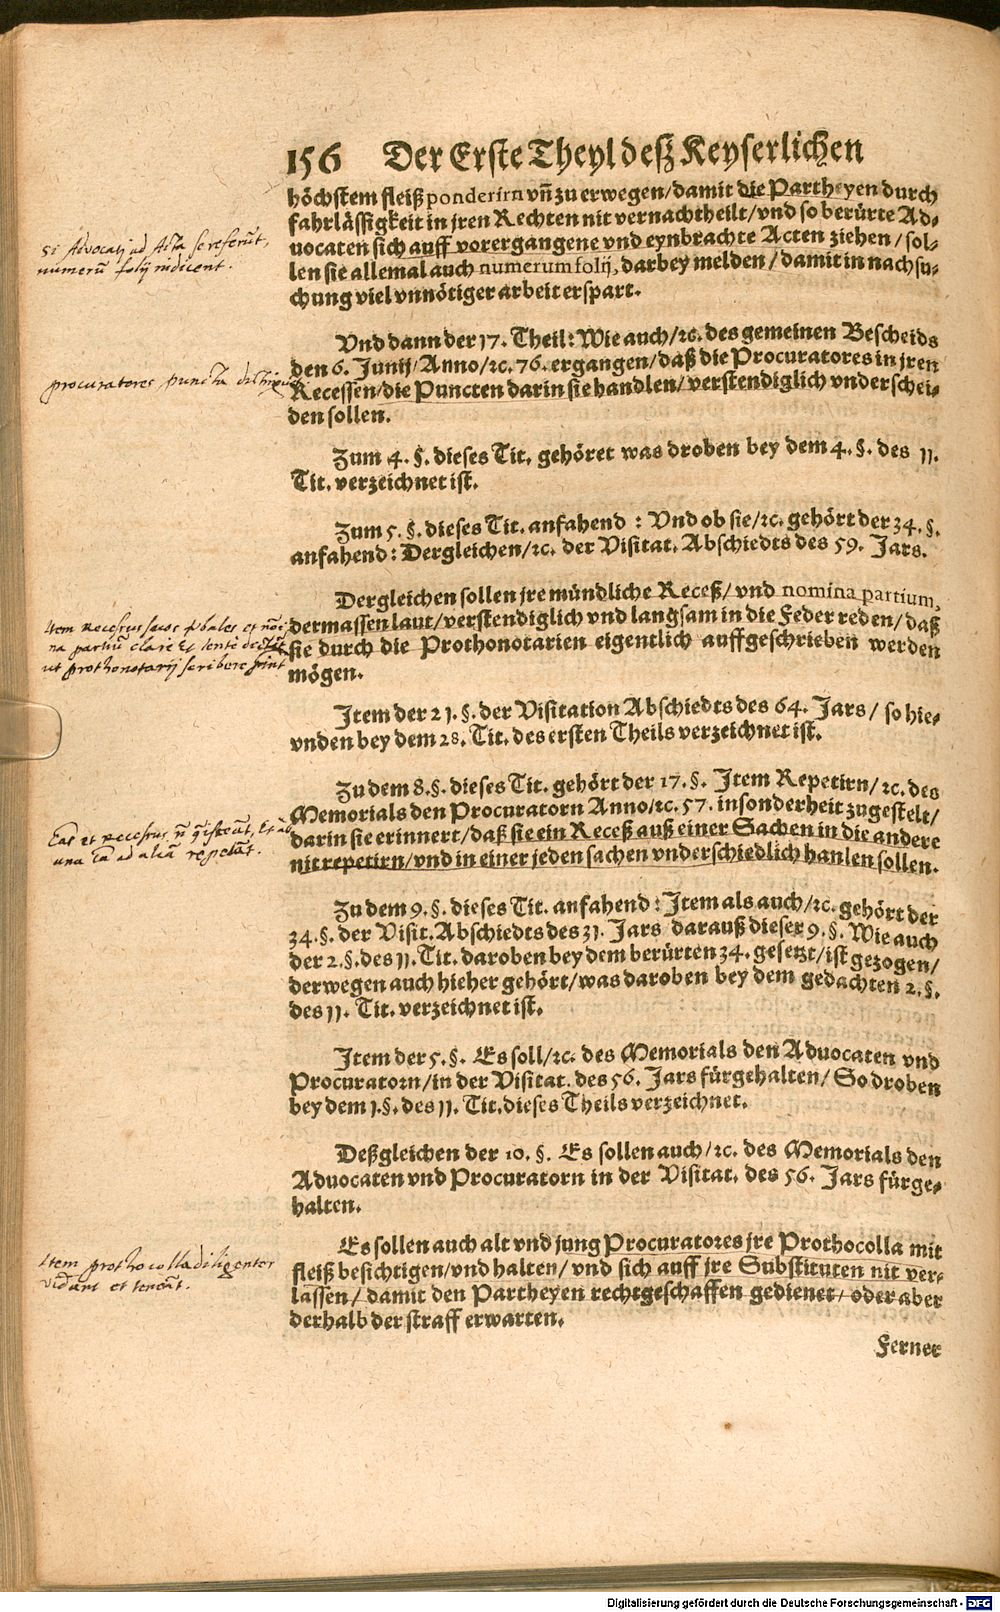 156 Der Erste Theyl deß Keyserlichen
höchstem fleiß ponderirn vn̄ zu erwegen/ damit die Partheyen durch
fahrlässigkeit in jren Rechten nit vernachtheilt/ vnd so berürte Ad-
uocaten sich auff vorergangene vnd eynbrachte Acten ziehen/ sol-
len sie allemal auch numerum folij, darbey melden/ damit in nachsu-
chung viel vnnötiger arbeit erspart.
Si Advocati ad Acta se referūt,
numerū folij indicent.
Vnd dann der 17. Theil: Wie auch/ ꝛc. des gemeinen Bescheids
den 6. Junij/ Anno/ ꝛc. 76. ergangen/ daß die Procuratores in jren
Recessen/ die Puncten darin sie handlen/ verstendiglich vnderschei-
den sollen.
procuratores puncta
Zum 4. §. dieses Tit. gehöret was droben bey dem 4. §. des 11.
Tit. verzeichnet ist.
Zum 5. §. dieses Tit. anfahend: Vnd ob sie/ ꝛc. gehört der 34. §.
anfahend: Dergleichen/ ꝛc. der Visitat. Abschiedts des 59. Jars.
Dergleichen sollen jre mündliche Receß/ vnd nomina partium,
dermassen laut/ verstendiglich vnd langsam in die Feder reden/ daß
sie durch die Prothonotarien eigentlich auffgeschrieben werden
mögen.
Item Recessus suos et nōi-
na partiū clare et lente
ut prothonotarij scribere
Item der 21. §. der Visitation Abschiedts des 64. Jars/ so hie-
vnden bey dem 28. Tit. des ersten Theils verzeichnet ist.
Zu dem 8. §. dieses Tit. gehört der 17. §. Item Repetirn/ ꝛc. des
Memorials den Procuratorn Anno/ ꝛc. 57. insonderheit zugestelt/
darin sie erinnert/ daß sie ein Receß auß einer Sachen in die andere
nit repetirn/ vnd in einer jeden sachen vnderschiedlich hanlen sollen.
et Recessus
una ad aliā repetāt.
Zu dem 9. §. dieses Tit. anfahend: Item als auch/ ꝛc. gehört der
34. §. der Visit. Abschiedts des 31. Jars darauß dieser 9. §. Wie auch
der 2. §. des 11. Tit. daroben bey dem berürten 34. gesetzt/ ist gezogen/
derwegen auch hieher gehört/ was daroben bey dem gedachten 2. §.
des 11. Tit. verzeichnet ist.
Item der 5. §. Es soll/ ꝛc. des Memorials den Aduocaten vnd
Procuratorn/ in der Visitat. des 56. Jars fürgehalten/ So droben
bey dem 1. §. des 11. Tit. dieses Theils verzeichnet.
Deßgleichen der 10. §. Es sollen auch/ ꝛc. des Memorials den
Aduocaten vnd Procuratorn in der Visitat. des 56. Jars fürge-
halten.
Es sollen auch alt vnd jung Procuratores jre Prothocolla mit
fleiß besichtigen/ vnd halten/ vnd sich auff jre Substituten nit ver-
lassen/ damit den Partheyen rechtgeschaffen gedienet/ oder aber
derhalb der straff erwarten.
Item prothocolla diligenter
videant et teneāt.
Ferner
Digitalisierung gefördert durch die Deutsche Forschungsgemeinschaft - DFG